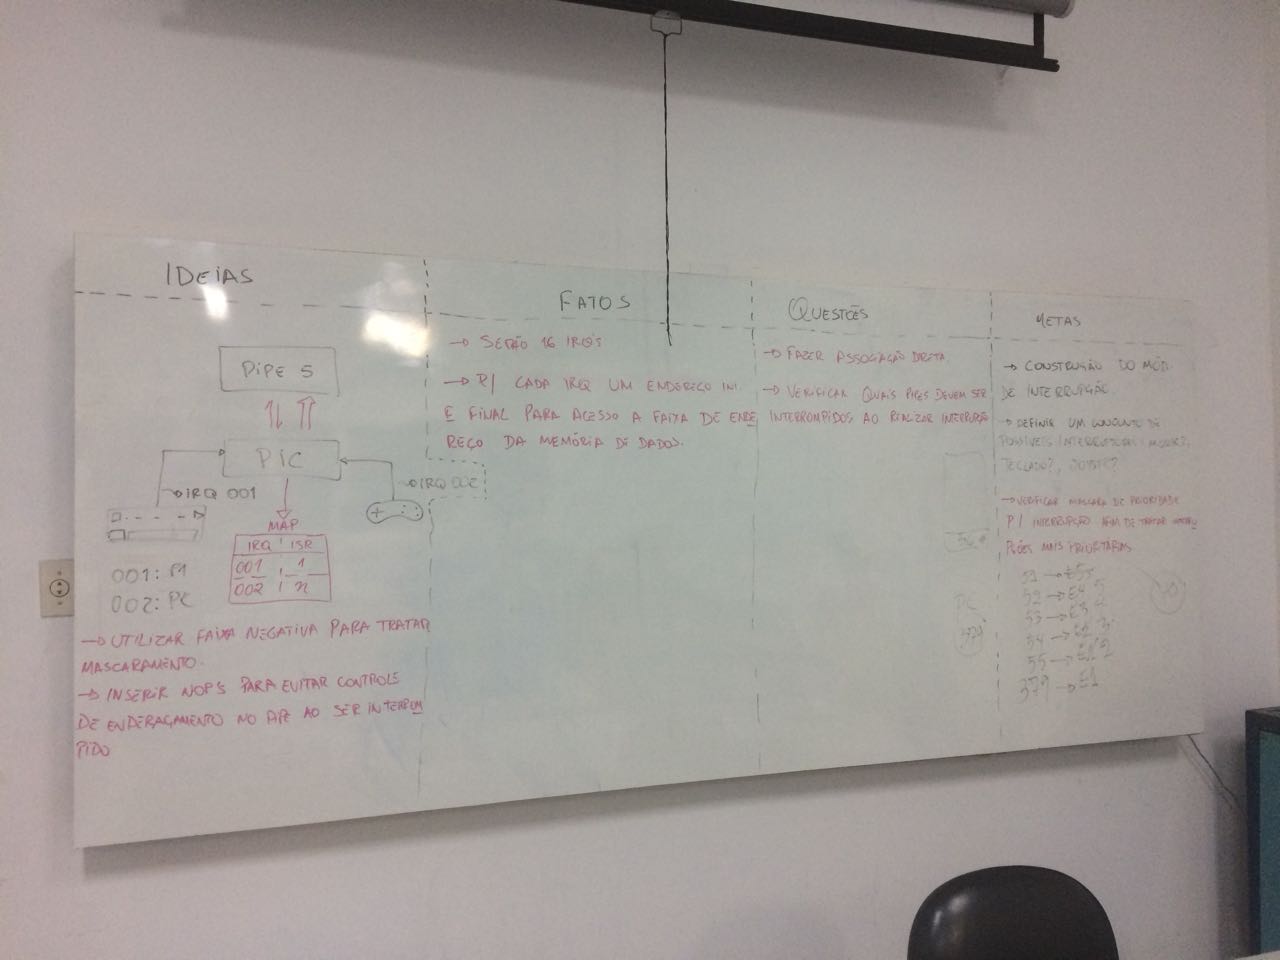 IDEIAS
PIPE 5
PIC
IRQ 001
IRQ 002
MAP
IRQ ISR
001 1
002 n
001: M
002: PC
→ UTILIZAR FAIXA NEGATIVA PARA TRATAR
MASCARAMENTO.
→ INSERIR NOP'S PARA EVITAR CONTROLE
DE ENDERAÇAMENTO NO PIPE AO SER INTERROM
PIDO
FATOS
→ SERÃO 16 IRQ'S
→ P/ CADA IRQ UM ENDEREÇO INI.
E FINAL PARA ACESSO A FAIXA DE ENDE
REÇO DA MEMÓRIA DE DADOS.
QUESTÕES
→ FAZER ASSOCIAÇÃO DIRETA.
→ VERIFICAR QUAIS PIPES DEVEM SER
INTERROMPIDOS AO REALIZAR INTERRUPÇÃO
PC
379
METAS
→ CONSTRUÇÃO DO MÓD.
DE INTERRUPÇÃO.
→ DEFINIR UM CONJUNTO DE
POSSÍVEIS INTERRUPTORES: MOUSE?,
TECLADO?,
→ VERIFICAR MASCARA DE PRIORIDADE
P/ INTERRUPÇÃO AFIM DE TRATAR
MAIS PRIORITÁRIAS
51 →
52 → E4
53 → E3
54 → E2
55 →
379 → E1